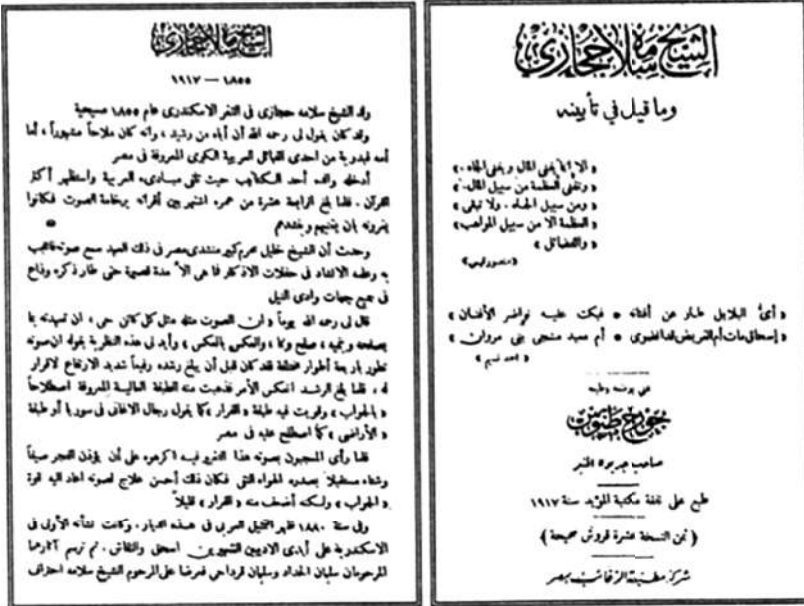 الشيخ سلامه حجازي
وما قيل في تأبينه
« الا انما يفنى المال ويفنى الجاه . »
« وتفنى العظمة من سبيل المال . »
« ومن سبيل الجاه . ولا تبقى »
« العظمة الا من سبيل المواهب »
« والفضائل »
« منصور فهمي »
« أي البلابل طار عن أفنانه * فبكت عليه نواضر الأفنان »
« إسحاق مات أم الغريض * أم معبد منجى بني مروان »
« احمد نسيم »
عني بوضعه وطبعه
جورج طنوس
صاحب جريدة المنبر
طبع على نفقة مكتبة المؤيد سنة ١٩١٧
( ثمن النسخة عشرة قروش صحيحة )
شركة مطبعة الرغائب بمصر
الشيخ سلامه حجازي
١٨٥٥ — ١٩١٧
ولد الشيخ سلامه حجازى فى الثغر الاسكندرى عام ١٨٥٥ مسيحية
ولقد كان يقول لى رحمه الله أن أباه من رشيد ، وانه كان ملاحاً مشهوراً ، أما
أمه فبدوية من احدى القبائل العربية الكبرى المعروفة فى مصر
أدخله والده أحد الكتاتيب حيث تلقى مبادىء العربية واستظهر أكثر
القرآن . فلما بلغ الرابعة عشرة من عمره اشتهر بين أقرانه برخامة الصوت فكانوا
يغرونه بان يغنيهم وينشدهم
وحدث أن الشيخ خليل محرم كبير منشدى مصر فى ذلك العهد سمع صوته فاعجب
به وطلبه الانشاد فى حفلات الاذكار فما هى الا مدة قصيرة حتى طار ذكره وذاع
فى جميع جهات وادى النيل
قال لى رحمه الله يوماً « ان الصوت مثله مثل كل كائن حى ، ان تعهدته بما
يصلحه وينميه ، صلح ونما ، والعكس بالعكس » وأيد لى هذه النظرية بقوله ان صوته
تطور باربعة أطوار مختلفة فقد كان قبل أن يبلغ رشده رفيعاً شديد الارتفاع لا قرار
له ، فلما بلغ الرشد انعكس الأمر فذهبت منه الطبقة العالية المعروفة اصطلاحاً
« بالجواب » وقويت فيه طبقة « القرار » كما يقول رجال الاغانى فى سوريا أو طبقة
« الأراضى » كما اصطلح عليه فى مصر
فلما رأى المعجبون بصوته هذا التغيير فيه اكرهوه على أن يؤذن الفجر صيفاً
وشتاء مستقبلاً بصدره الهواء النقى فكان ذلك أحسن علاج لصوته اعاد اليه قوة
« الجواب » ولكنه أضعف منه « القرار » قليلاً
وفى سنة ١٨٨٠ ظهر التمثيل العربى فى هذه الديار . وكانت نشأته الأولى فى
الاسكندرية على أيادى الاديبين الشهيرين اسحق والنقاش . ثم ترسم آثارهما
المرحومان سليمان الحداد وسليمان قرداحى فعرضا على المرحوم الشيخ سلامه احتراف